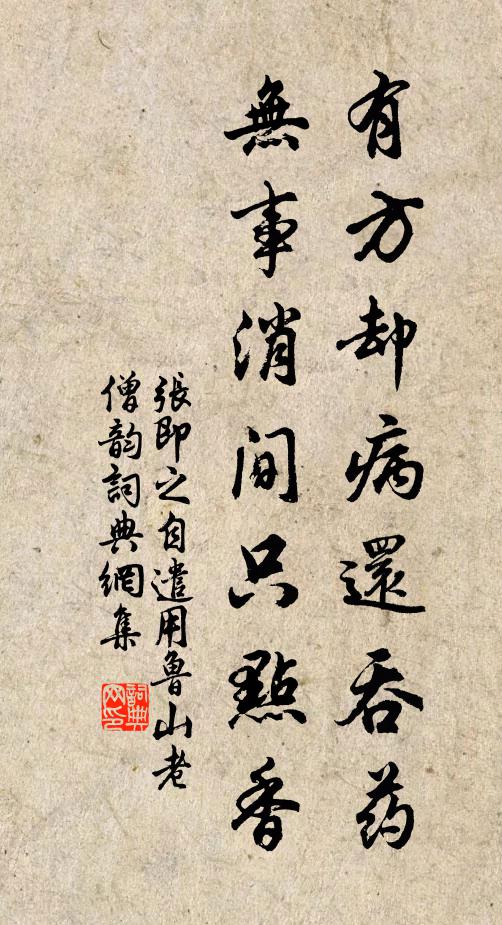 有方却病還吞药
無事消间只點香
張即之自遣用魯山老
僧韵詞典網集
詞典网印